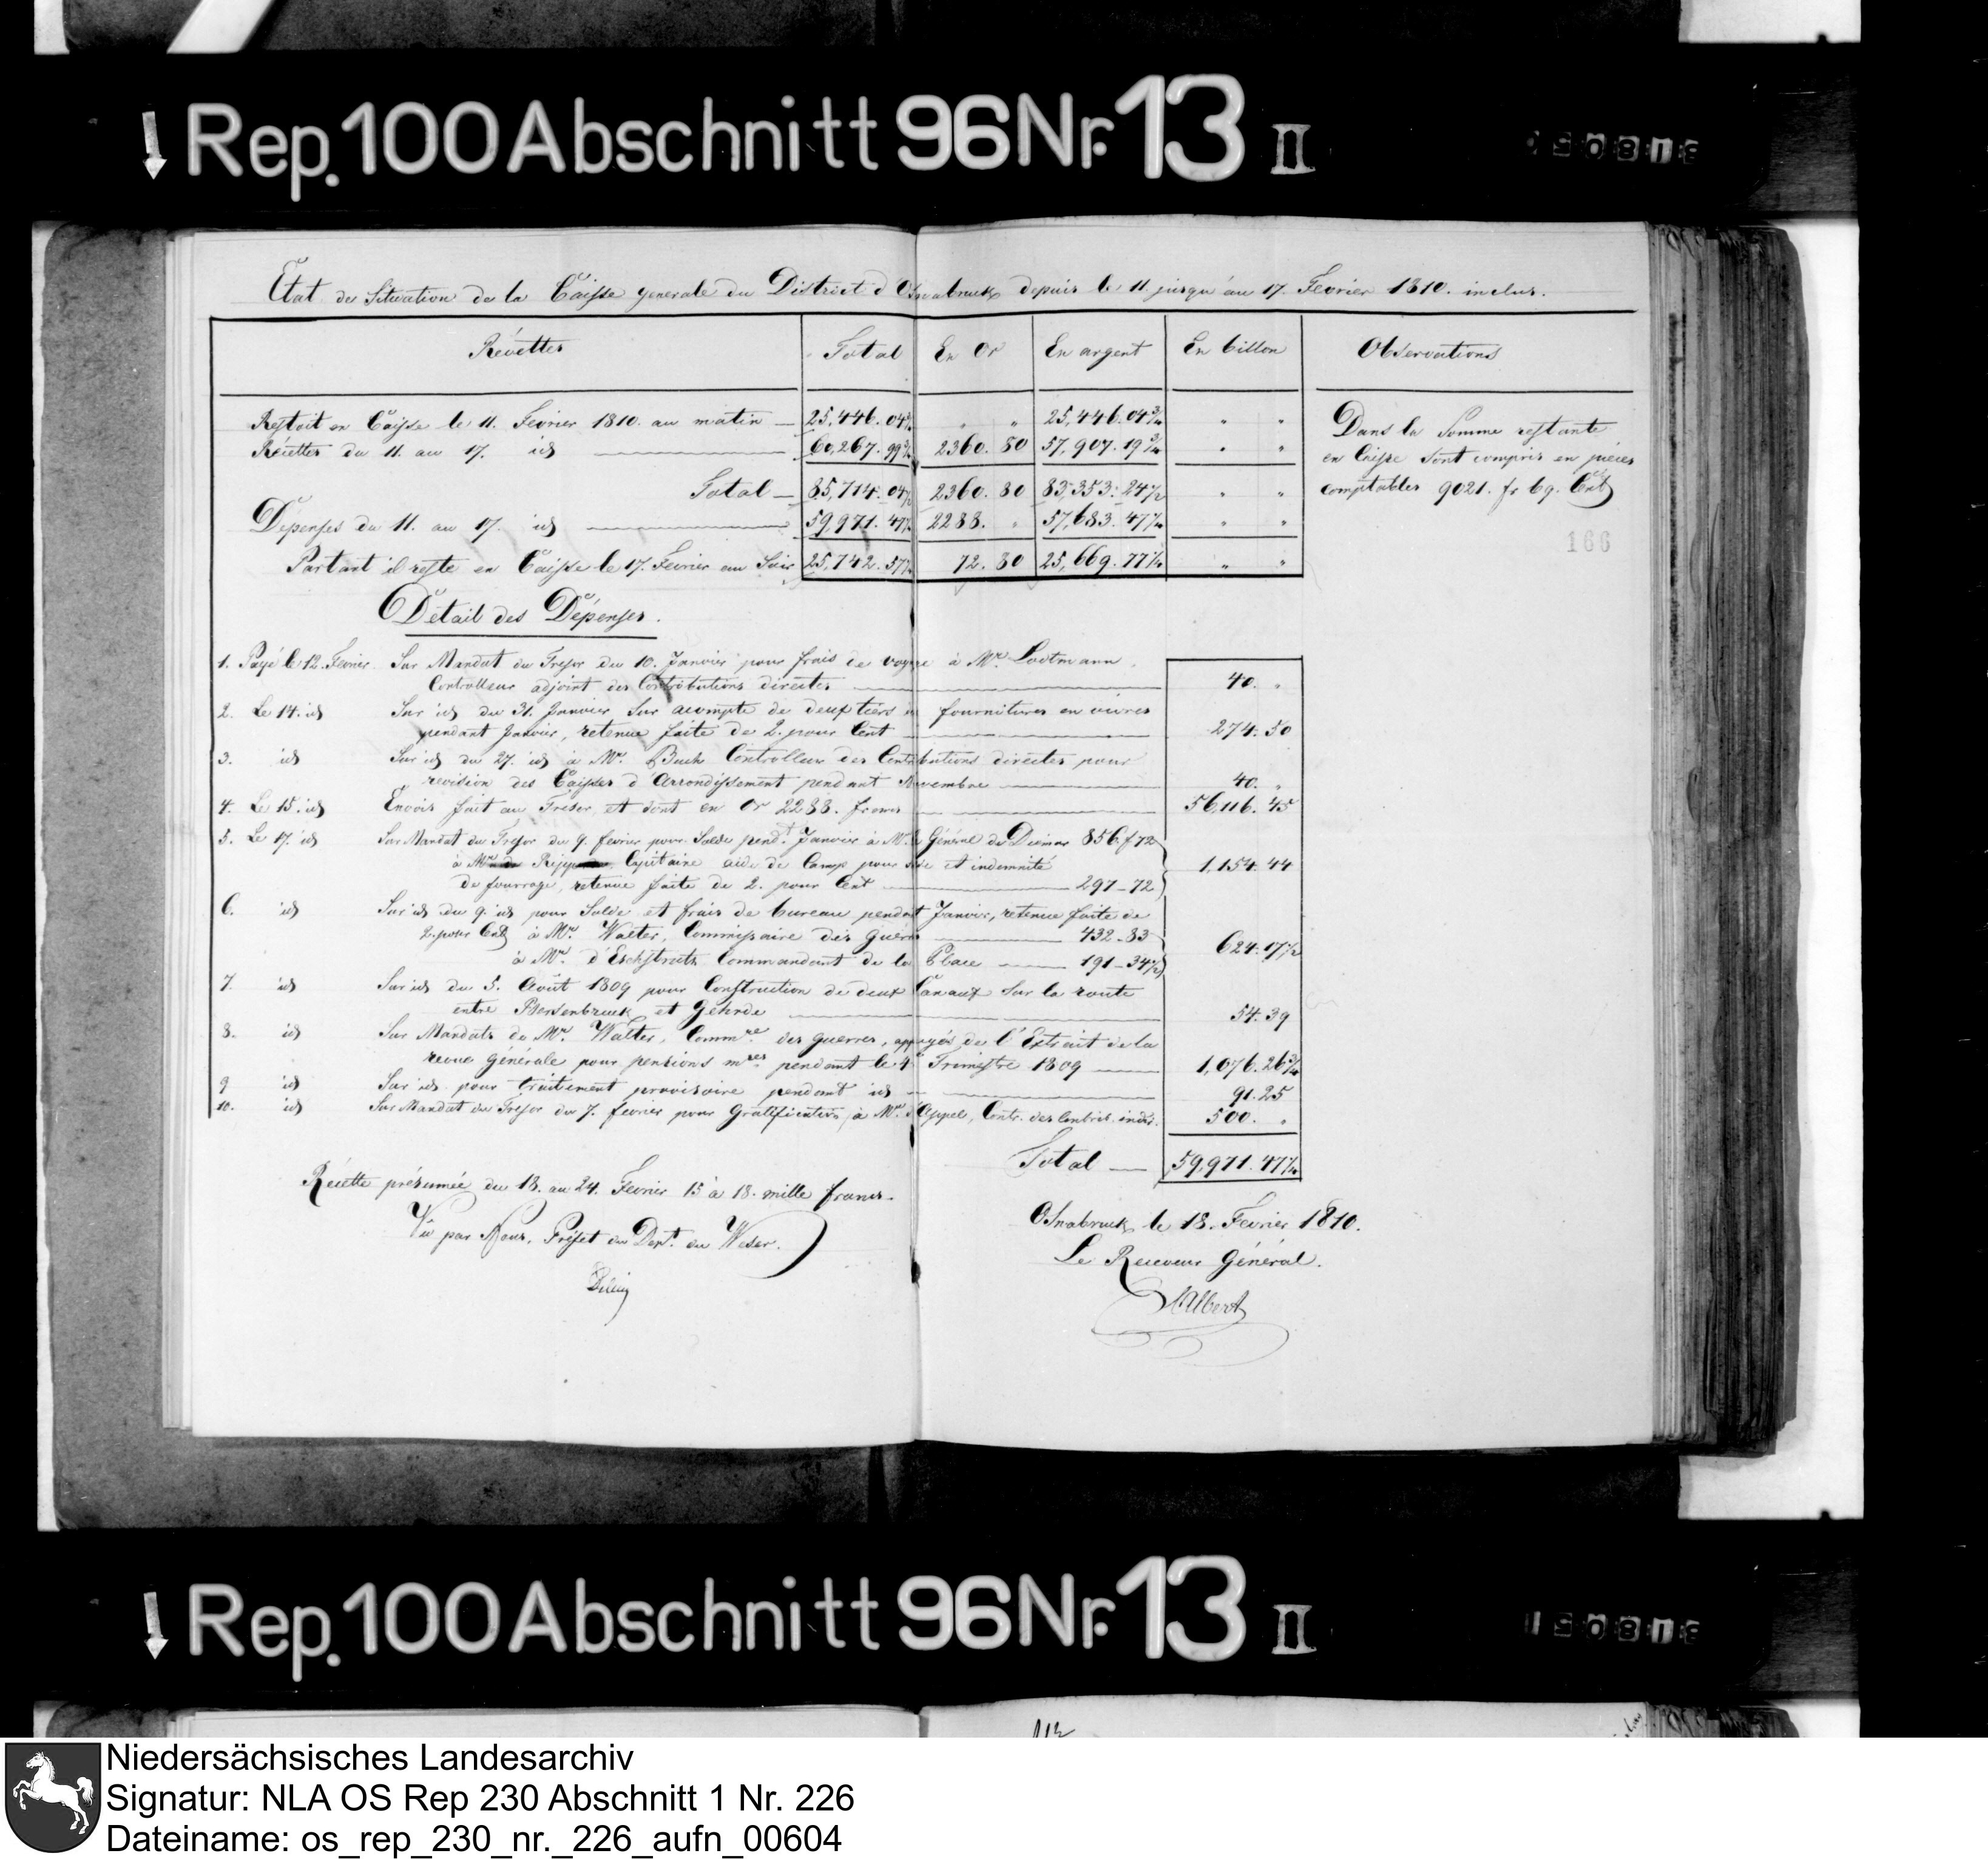 Rep. 100 Abschnitt 96 Nr. 13 II
Etat de Situation de la Caisse generale du District d'Osnabruck depuis le 11 jusqu'au 17. Fevrier 1810. inclus.
Récettes Total En Or En argent En billon Observations
Restoit en Caisse le 11. Fevrier 1810. au matin — 25,446. 04¾ " " 25,446. 04¾ " "
Récettes du 11. au 17. id — 60,267. 99¾ 2360. 80 57,907. 19¾ " "
Total — 85,714. 04½ 2360. 80 83,353. 24½ " "
Dépenses du 11. au 17. id — 59,971. 47¼ 2288. " 57,683. 47¼ " "
Partant il reste en Caisse le 17. Fevrier au Soir 25,742. 57¼ 72. 80 25,669. 77¼ " "
Dans la Somme restante
en Caisse sont compris en pieces
comptables 9021. fr 69. Cent
166
Détail des Dépenses.
1. Payé le 12. Fevrier Sur Mandat du Tresor du 10. Janvier pour frais de voyage à Mr. Lodtmann
Controlleur adjoint des Contributions directes — 40. "
2. Le 14. id Sur id du 31. Janvier Sur acompte de deux tiers en fournitures en vivres
pendant Janvier, retenue faite de 2. pour Cent — 274. 50
3. id Sur id du 27. id à Mr. Buch Controlleur des Contributions directes pour
revision des Caisses d'Arrondissement pendant Novembre — 40. "
4. Le 15. id Envois fait au Tresor, et dont en Or 2288. francs — 56,116. 45
5. Le 17. id Sur Mandat du Tresor du 9. fevrier pour Solde pend.t Janvier à Mr. le Général de Diemar 856 f 72
à Mr. Capitaine aide de Camp pour et indemnité
de fourrage, retenue faite de 2. pour Cent — 297 – 72 1,154. 44
6. id Sur id du 9. id pour Solde et frais de bureau pendant Janvier, retenue faite de
2. pour Cent à Mr. Walter, Commissaire des guerres — 432 – 83
à Mr. d'Eschstruth Commandant de la Place — 191 – 34½ 624. 17½
7. id Sur id du 5. Août 1809 pour Construction de deux Canaux Sur la route
entre Bersenbruck et Gehrde — 54. 39
8. id Sur Mandats de Mr. Walter, Comm.re des guerres, appuyés de l'Extrait de la
revue Générale pour pensions m.res pendant le 4e Trimestre 1809 — 1,076. 26¾
9 id Sur id pour traitement provisoire pendant id — 91. 25
10. id Sur Mandat du Tresor du 7. fevrier pour Gratification à Mr. d'Appel, Contr. des Contrib. indir. 500. "
Total — 59,971. 47¼
Récette présumée du 18. au 24. Fevrier 15 à 18. mille francs.
Vû par Nous, Préfet du Dept. du Weser.
Osnabruck le 18. Fevrier 1810.
Le Receveur Général.
Albert
Rep. 100 Abschnitt 96 Nr. 13 II
Niedersächsisches Landesarchiv
Signatur: NLA OS Rep 230 Abschnitt 1 Nr. 226
Dateiname: os_rep_230_nr._226_aufn_00604